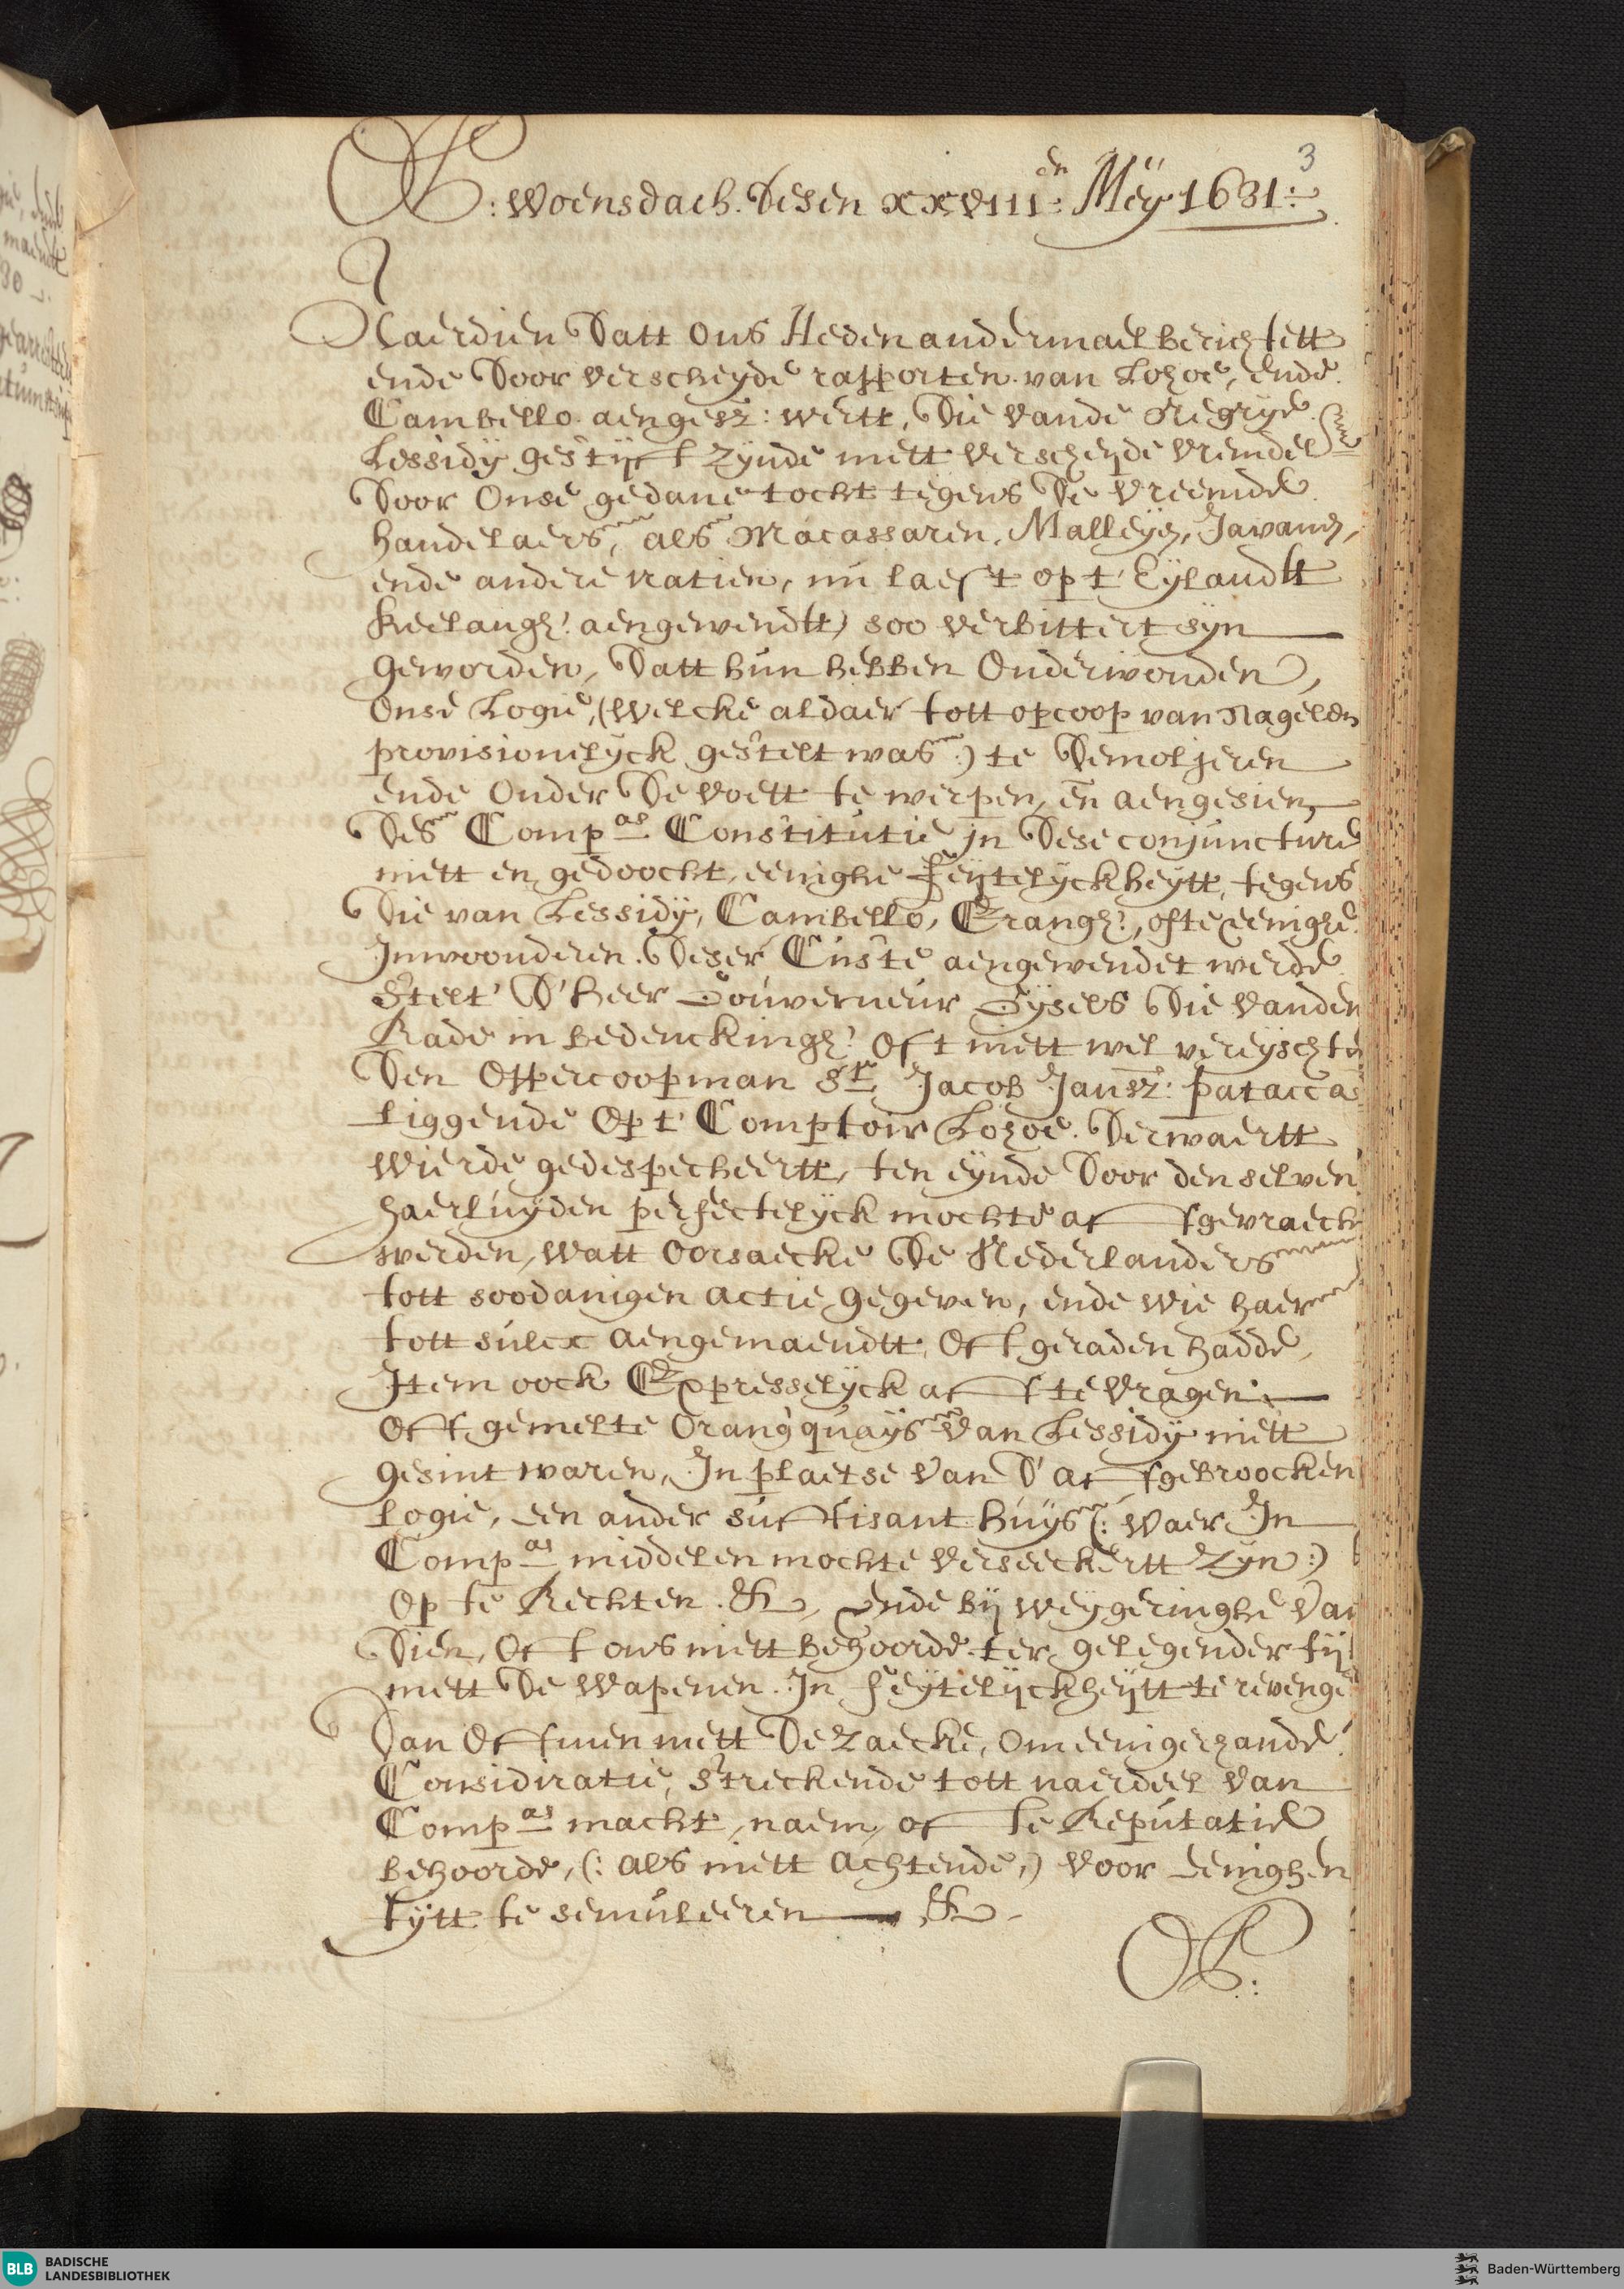 3
: Woensdach. Desen XXVIII:en Meÿ 1631:
Naerdien Datt ons Heden andermael berichtett
ende Door verscheyde rapporten van Lohoe, ende
Cambello aengesz: wertt, Die vande Negrÿe
Lessidÿ gestijft zynde mett verscheyde vremdel
Door Onse gedane tocht tegens De Vreemde
handelaers, als Macassaren, Malleÿe, Javane,
ende andere natien, nu laest op t' Eÿlandtt
Keelangh: aengewendtt) soo verbittert syn
geworden, Datt hun hebben Onderwonden,
Onse Logie, (welcke aldaer tott opcoop van Nagelen
provisionelÿck gestelt was:) te Demoljeren
ende Onder De voett te werpen, en̄ aengesien
Des Comp:as Constitutie jn Dese conjuncture
niett en gedoocht, eenighe feÿtelÿckheÿtt, tegens
Die van Lessidÿ, Cambello, Erangh:, ofte eenighe
Inwoonderen Deser Custe aengewendet werde
Stelt' D'heer Gouverneur Gÿsels Die vanden
Rade in bedenckingh: oft niett wel vereÿschte
Den Oppercoopman Sr. Jacob Jansz: patacca
Liggende Op t' Comptoir Lohoe Derwaertt
Wierde gedespecheertt, ten eÿnde Door denselven
haerluÿden perfectelÿck mochte af fgevraecht
werden, Watt Oorsaecke De Nederlanders
tott soodanigen actie gegeven, ende wie haer
tott sulcx aengemaendtt, Oft geraden hadde,
Item oock Expresselÿck af f te vragen
Oft gemelte Orangquaÿs van Lessidÿ niett
gesint waren, In plaetse van D' af fgebroocken
Logie, een ander suffisant huÿs (: waer In
Comp:as middelen mochte verseeckertt zÿn:)
Op te Rechten. &a, ende bij weÿgeringhe van
Dien, Of t ons niett behoorde ter gelegender tij
mett De Wapenen In feÿtelijckheÿtt te revenge
Dan Of f men mett De zaecke, om eenigerhande
Consideratie, Streckende tott naerdeel van
Comp:as macht, naem, of te Reputatie
behoorde, (: als niett achtende,) voor eenighen
tÿtt te semuleeren &a
BLB BADISCHE
LANDESBIBLIOTHEK
Baden-Württemberg